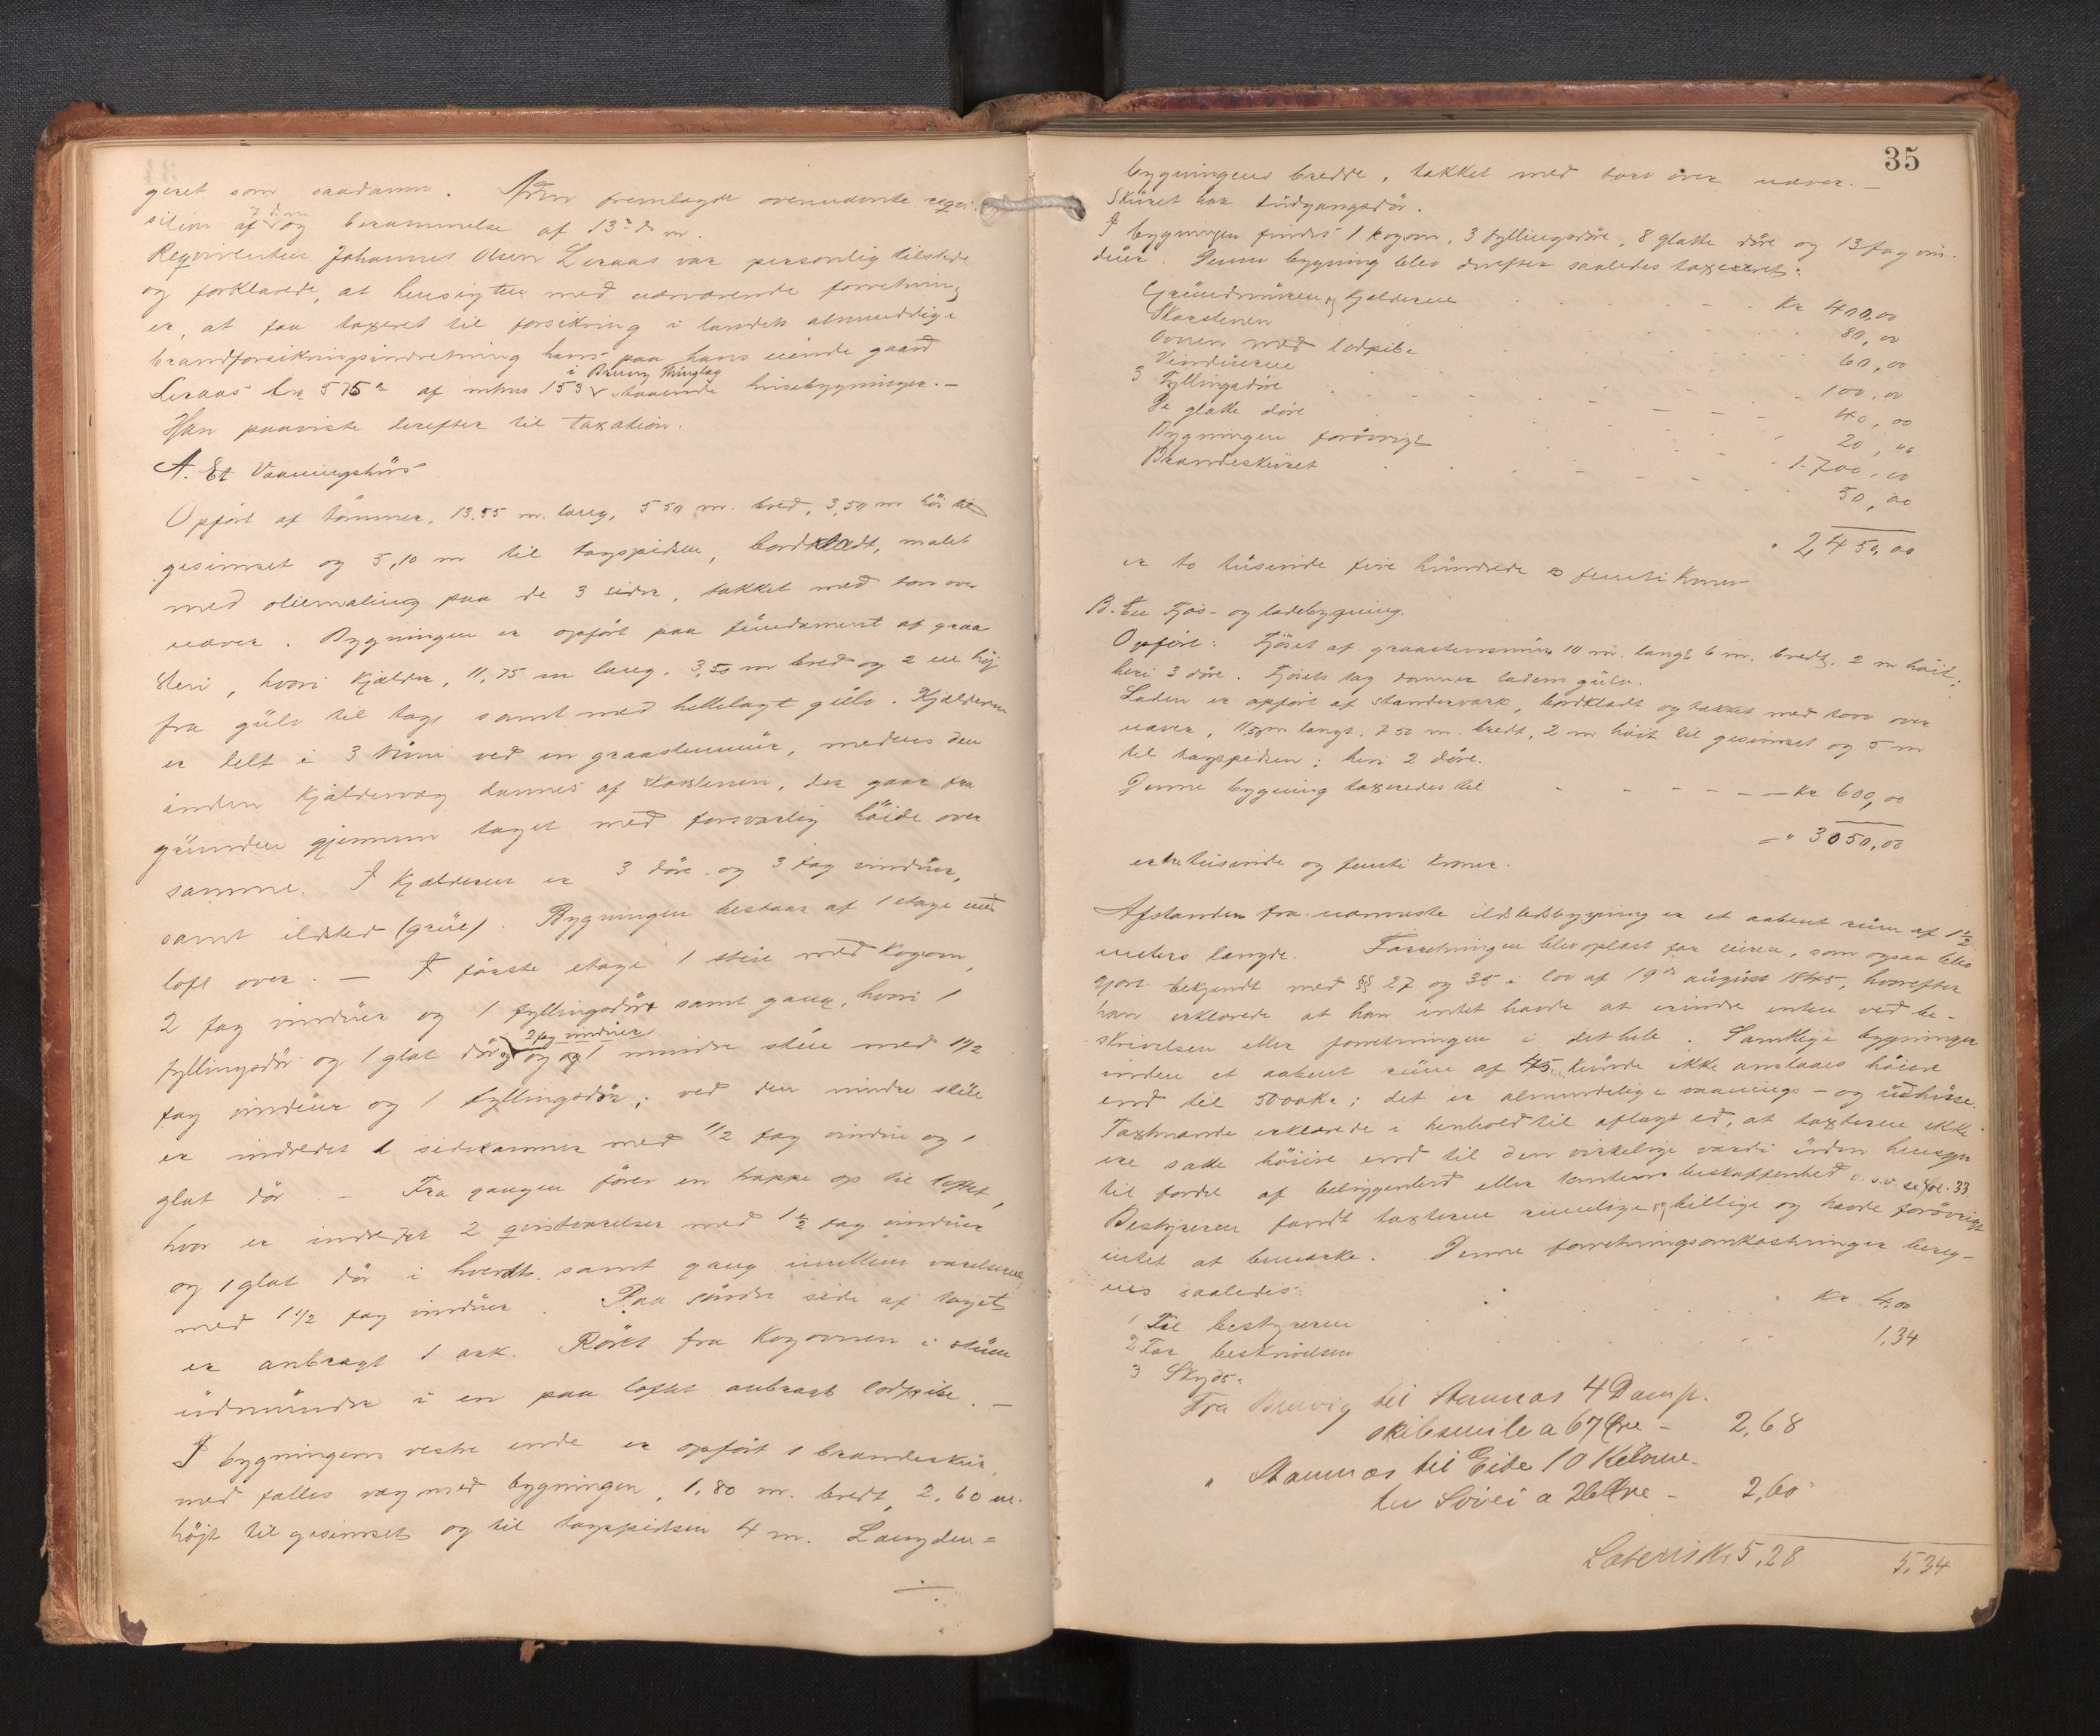 geret som saadanne. fremlagde ovennævnte reqvi-
sition af 7 d.m. og berammelse af 13de d. m.
Reqvirenten Johannes Olsen Leraas var personlig tilstede
og forklarede, at hensigten med nærværende forretning
er, at faa taxeret til forsikring i landets almindelige
brandforsikringsindretning hans paa hans eiende gaard
Leraas br. af mtrno 153 i Bruvig thinglag staaende husebygninger. —
Han paaviste derefter til taxation.
A. Et Vaaningshus
Opført af tømmer, 13,55 m. lang, 5 50 m. bred, 3,50 m høi til
gesimset og 5,10 m til tagspidsen, bordklædt, malet
med oliemaling paa de 3 sider, tækket med torv over
næver. Bygningen er opført paa fundament af graa
sten, hvori kjælder, 11,75 m lang, 3,50 m bred og 2 m høj
fra gulv til tage samt med hellelagt gulv. Kjælderen
er delt i 3 rum ved en graastenmur, medens den
anden kjældervæg dannes af skorstenen, der gaar fra
grunden gjennem taget med forsvarlig høide over
samme. I kjælderen er 3 døre og 3 fag vinduer,
samt ildsted (grue). Bygningen bestaar af 1 etage med
loft over. — I første etage 1 stue med kogovn,
2 fag vinduer og 1 fyllingsdør samt gang, hvori 1
fyllingsdør og 1 glat dør og 2 fag vinduer og 1 mindre stue med 1 1/2
fag vinduer og 1 fyllingsdør; ved den mindre stue
er indredet 1 sidekammer med 1/2 fag vindue og 1
glat dør. — Fra gangen fører en trappe op til loftet,
hvor er indredet 2 qvistværelser med 1 1/2 fag vinduer
og 1 glat dør i hverdt. samt gang imellem værelserne
med 1 1/2 fag vinduer. Paa søndre side af taget
er anbragt 1 ark. Røret fra kogovnen i stuen
udmunder i en paa loftet anbragt lodpibe. —
I bygningens vestre ende er opført 1 brandeskur,
med fælles væg med bygningen, 1,80 m. bredt, 2,60 m.
højt til gesimset og til tagspidsen 4 m. Længden =
35
bygningens bredde, tækket med torv over næver. —
Skuret har 1 udgangsdør.
I bygningen findes 1 kogovn, 3 fyllingsdøre, 8 glatte døre og 13 fag vin-
duer. Denne bygning blev derefter saaledes taxeret:
Grundmuren og Kjælderen Kr 400,00
Skorstenen 80,00
Ovnen med lodpibe 60,00
Vinduerne 100,00
3 Fyllingsdøre 40,00
De glatte døre 20, "
Bygningen forøvrigt 1.700,00
Brandeskuret 50,00
" 2,450,00
er to tusinde fire hundrede & femti Kroner
B. En Fjøs- og ladebygning.
Opført: Fjøset af graastensmur 10 m. langt 6 m. bredt. 2 m høit;
heri 3 døre. Fjøsets tag danner ladens gulv.
Laden er opført af standerværk, bordklædt og tækket med torv over
næver, langt. 7 50 m. bredt, 2 m høit til gesimset og 5 m
til tagspidsen; heri 2 døre.
Denne bygning taxeredes til — Kr 600,00
— " 3050,00
er tretusinde og femti kroner.
Afstanden fra nærmeste ildstedsbygning er et aabent rum af 1 1/2
meters længde. Forretningen blev oplæst for eieren, som ogsaa blev
gjort bekjendt med §§ 27 og 35 i lov af 19de august 1845, hvorefter
han erklærede at han intet havde at erindre enten ved be-
skrivelsen eller forretningen i det hele. Samtlige bygninger
inden et aabent rum af 45 kunde ikke anslaaes høiere
end til 5000 Kr; det er almindelige vaanings- og udhuse.
Taxtmænde erklærede i henhold til aflagt ed, at taxterne ikke
ere satte høiere end til den virkelige værdi uden hensyn
til fordel af beliggenhed eller tomtens beskaffenhed o.s.v. se fol. 33.
Bestyreren fandt taxterne rimelige og billige og havde forøvrigt
intet at bemærke. Denne forretningsomkostninger bereg-
nes saaledes:
1 Til bestyreren Kr 4,00
2 For beskrivelsen 1,34
3 Skyds:
Fra Bruvig til Stamnæs 4 Damp.
skibsmile a 67 Øre — 2,68
" Stamnæs til Eide 10 Kilome-
ter Søvei a 26 Øre — 2,60
Lateris Kr 5,28 5,34